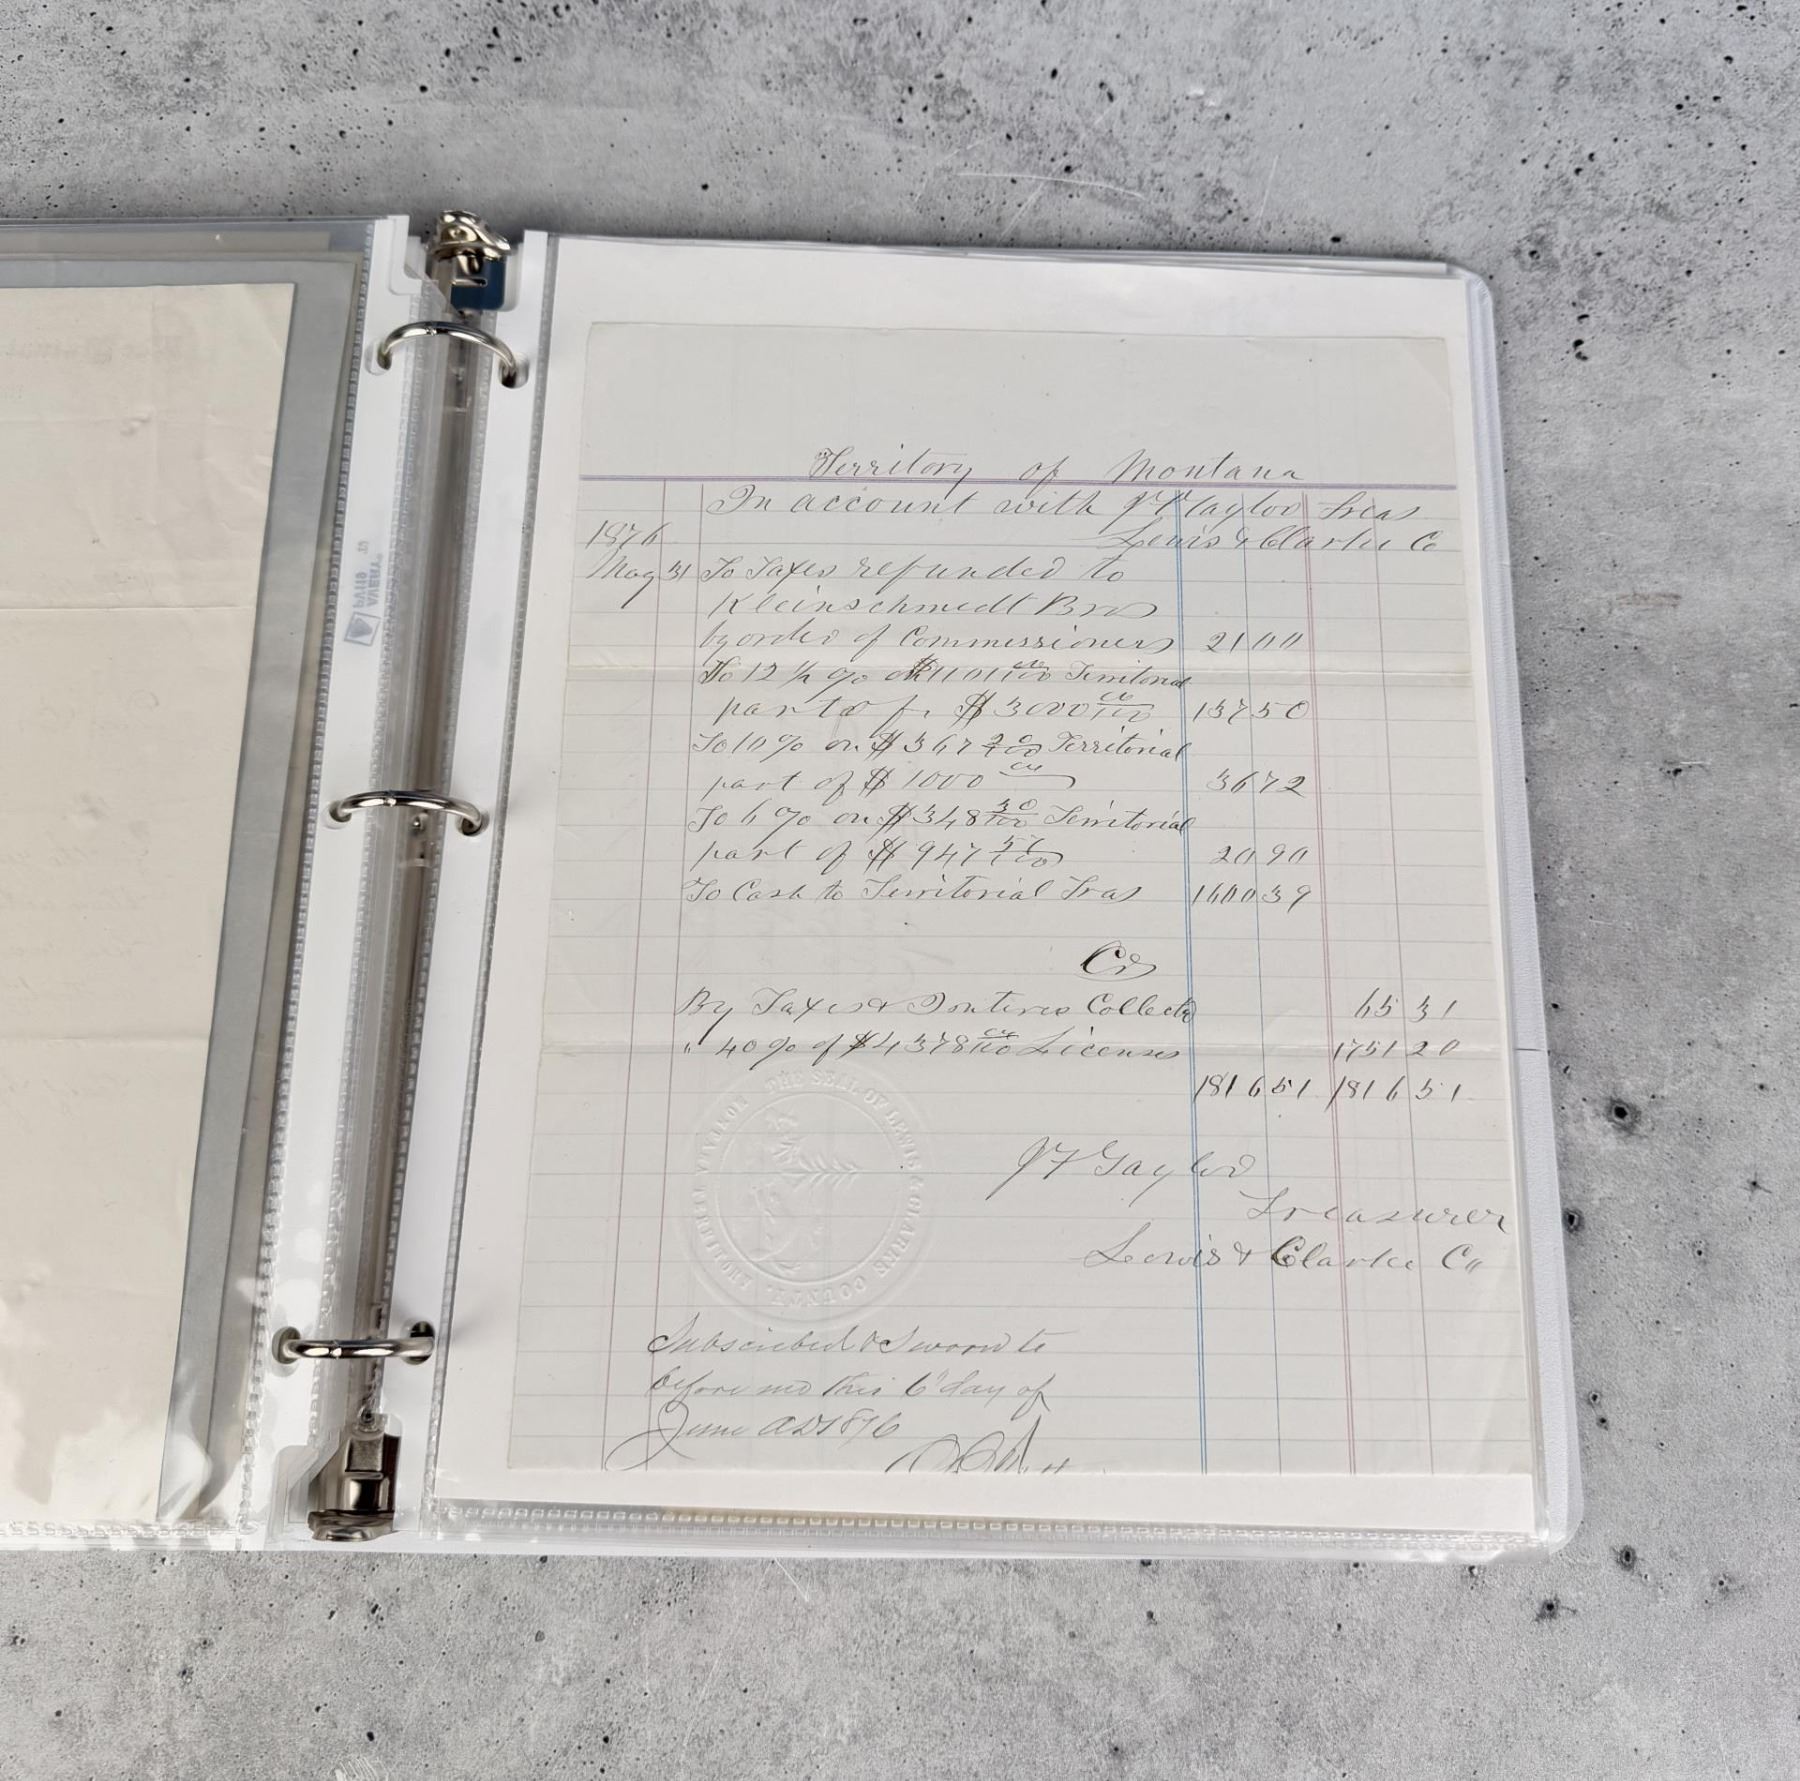 Territory of Montana
In account with J F Taylor Treas
Lewis & Clarke Co
1876
May 31 To Taxes refunded to
Kleinschmedt Bros
by order of Commissioners 21 00
To 12 ½ % on $1101 00/100 Territorial
part of $3000 00/100 137 50
To 10 % on $367 20/100 Territorial
part of $1000 00 36 72
To 6 % on $348 30/100 Territorial
part of $947 57/100 20 90
To Cash to Territorial Tras 1600 39
Cr
By Taxes & Collectd 65 31
" 40 % of $4378 00/100 Licenses 1751 20
1816 51 1816 51
THE SEAL OF LEWIS & CLARKE COUNTY. MONTANA TERRITORY
J F Taylor
Treasurer
Lewis & Clarke Co
Subscribed & Sworn to
before me this 6" day of
June AD 1876
AVERY